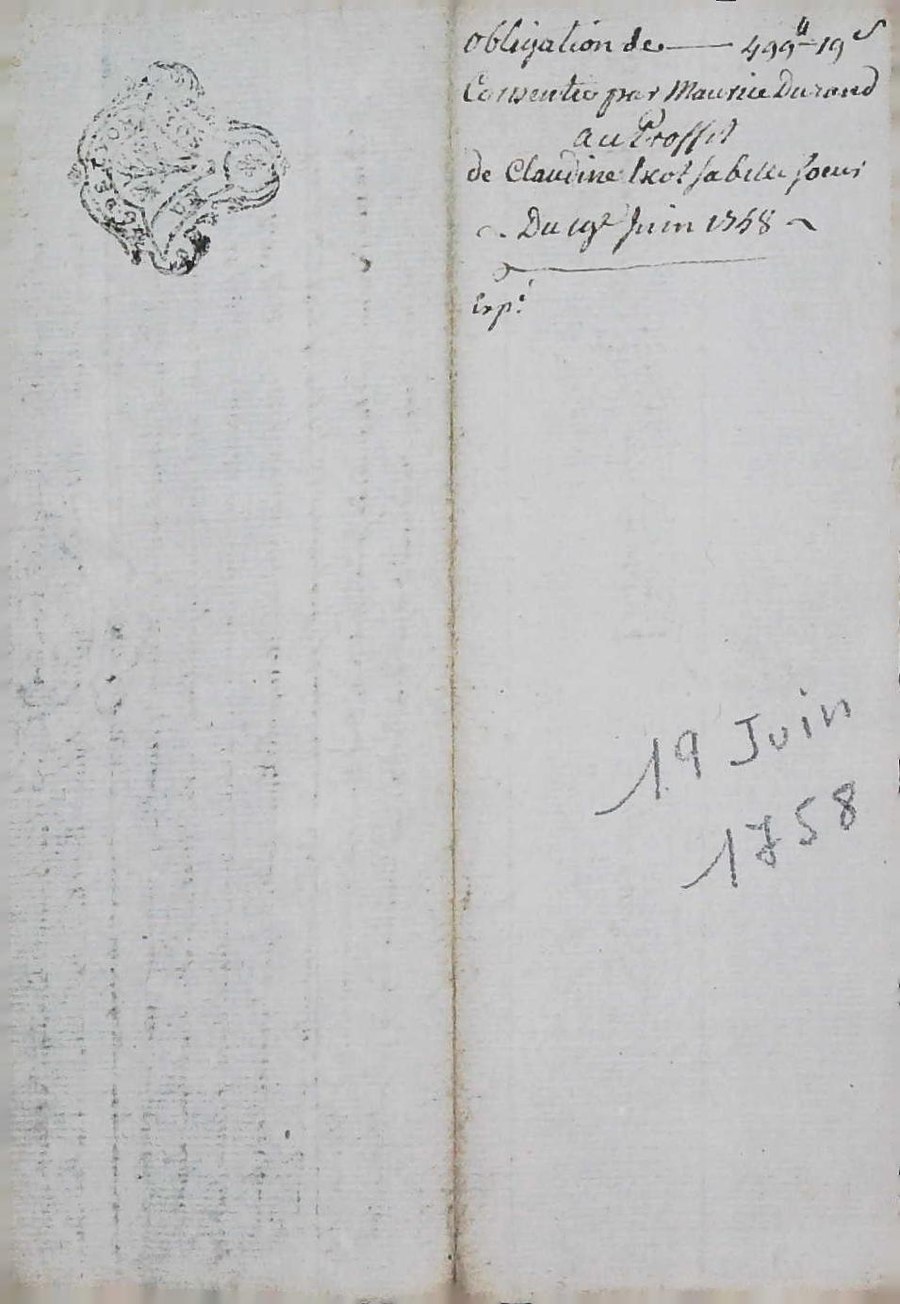 Obligation de —— 499ᵗᵗ 19ˢ
Consentie par Maurice Durand
au Proffit
de Claudine soeur
Du 19ᵉ Juin 1758
Expᵉ
19 Juin
1758